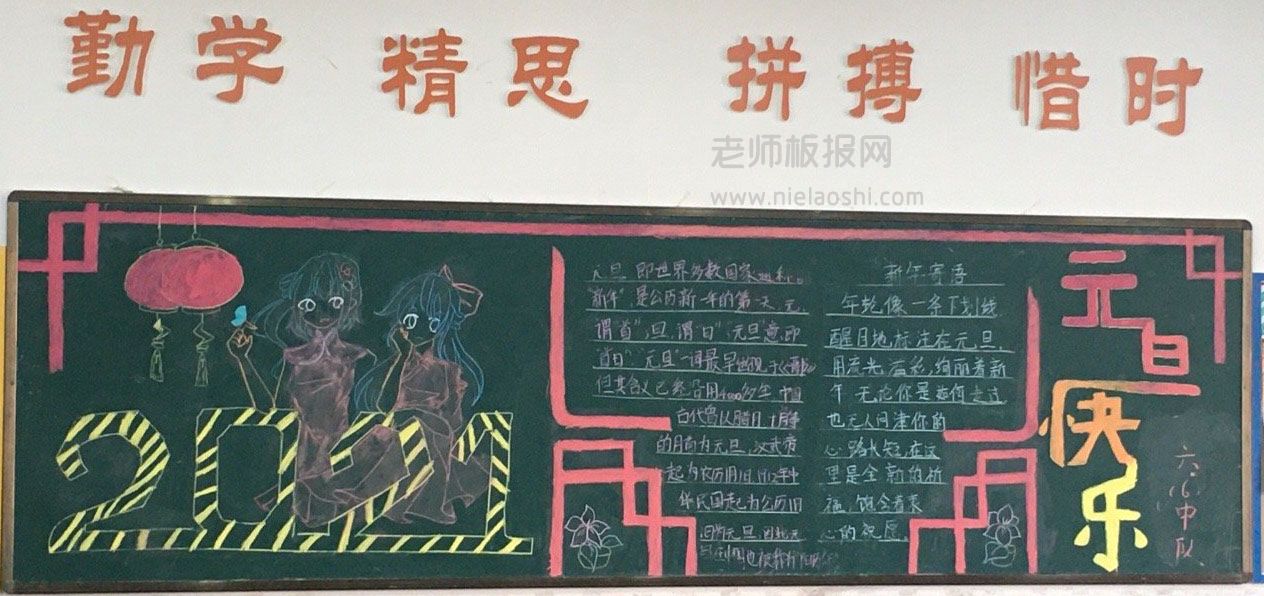 勤学 精思 拼搏 惜时
老师板报网
www.nielaoshi.com
元旦 即世界多数国家
"新年",是公历新一年的第一天 元,
谓"首",旦,谓"日" "元旦"意即
"首日" "元旦"一词最早出现于
但其含义已经沿用4000多年 中国
古代曾以腊月 十月等
的月首为元旦,汉武帝
起为农历1月1日 1912年中
华民国起为公历1月
新年寄语
年轮像一条下划线
醒目地标注在元旦,
用流光溢彩,绚丽着新
年 无论你是如何走过
也无人问津你的
心路长短,在这
里是全新的祈
福,饱含着衷
心的祝愿。
元旦
快乐
六(6)中队
2021